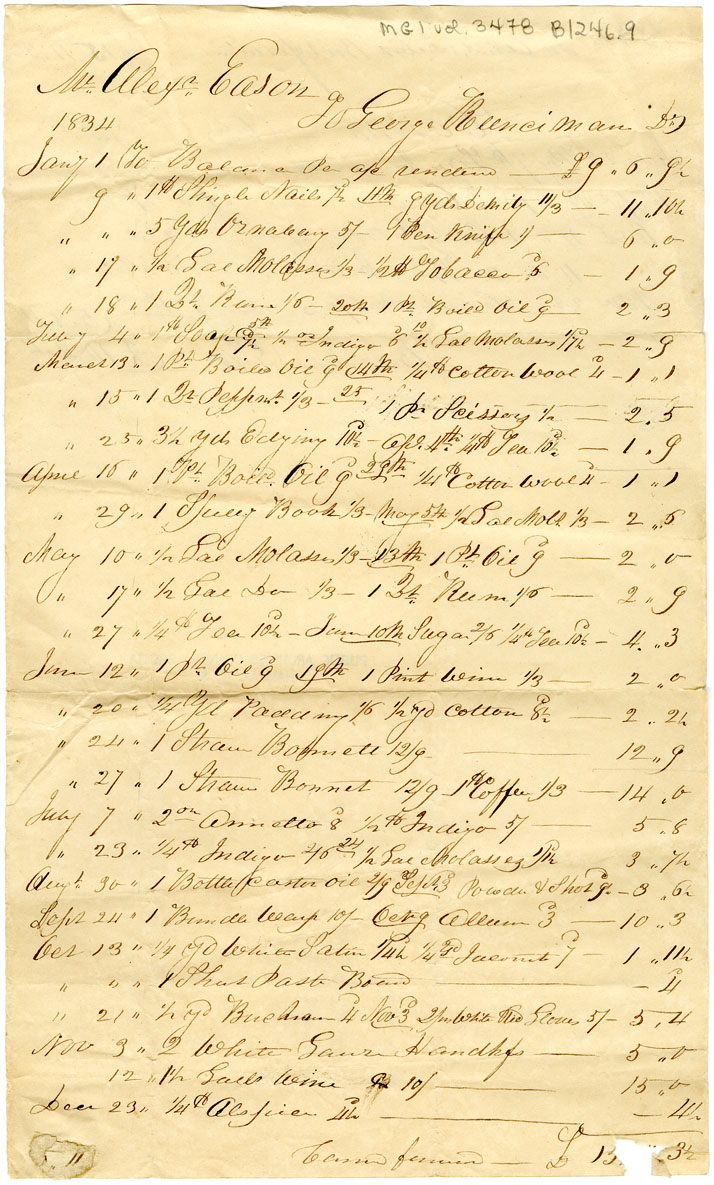 MG1 vol. 3478 B1246.9
Mr. Alexr Eason
To George Runciman Dr
1834
Jany 1 To Balance Pr a/c renderd — £9 „ 6 „ 9½
9 „ 1 lb Shingle Nails 7½ 11th 9 yds Demity 11/3 — 11 „ 10½
„ „ „ 5 Yds Osnaburg 5/- 1 Pen Knife 1/ — 6 „ 0
„ 17 „ ½ Gal Molasses 1/3 - ½ lb Tobacco 6d — 1 „ 9
„ 18 „ 1 Qt. Rum 1/6 - 20th 1 Pt. Boild Oil 9d — 2 „ 3
Feby 4 „ 1 lb Soap 5th ½ oz Indigo 6d 10 ½ Gal Molasses 1/7½ - 2 „ 9
March 13 „ 1 Pt Boild Oil 9d 14th ¼ lb Cotton Wool 4d - 1 „ 1
„ 15 „ 1 Qr Peppmt 1/3 - 25 1 Pr Scissors 1/2 — 2 „ 5
„ 25 „ 3½ Yds Edging 10½d - Apl. 4th ¼ lb Tea 10½d — 1 „ 9
April 16 „ 1 Pt. Boild. Oil 9d 29th ¼ lb Cotton Wool 4d - 1 „ 1
„ 29 „ 1 Spelly Book 1/3 - May 5th ½ Gal Molls 1/3 - 2 „ 6
May 10 „ ½ Gal Molasses 1/3 - 13th 1 Pt Oil 9d — 2 „ 0
„ 17 „ ½ Gal Do 1/3 - 1 Qt. Rum 1/6 — 2 „ 9
„ 27 „ ¼ lb Tea 10½d - June 10th Sugar 2/6 ¼ lb Tea 10½d - 4 „ 3
June 12 „ 1 Pt Oil 9d 19th 1 Pint Wine 1/3 — 2 „ 0
„ 20 „ ¼ Yd Padding 1/6 ½ yd Cotton 8½d — 2 „ 2½
„ 24 „ 1 Straw Bonnett 12/9 — 12 „ 9
„ 27 „ 1 Straw Bonnet 12/9 1 lb Coffee 1/3 — 14 „ 0
July 7 „ 2 oz Annetto 8d ½ lb Indigo 5/ — 5 „ 8
„ 23 „ ¼ lb Indigo 2/6 24 ½ Gal Molasses 1/1½ 3 „ 7½
Augt. 30 „ 1 Bottle Castor Oil 2/9 Sept. 3 Powder & Shot 9d - 3 „ 6
Sept 24 „ 1 Bundle Warp 10/- Oct 9 Allum 3d — 10 „ 3
Oct 13 „ ¼ yd White Satin 1/4½ ¼ yd Jaconet 7d — 1 „ 11½
„ „ „ 1 Sheet Paste Board — 4
„ 21 „ ½ yd Buckram 4d Nov 3 2 pr White Kid Gloves 5/- 5 „ 4
Nov 3 „ 2 White Gauze Handkfs — 5 „ 0
12 „ 1½ Galls Wine 10/ — 15 „ 0
Decr 23 „ ¼ lb Alspice 4½d — 4½
Carrd forward — £ 3½